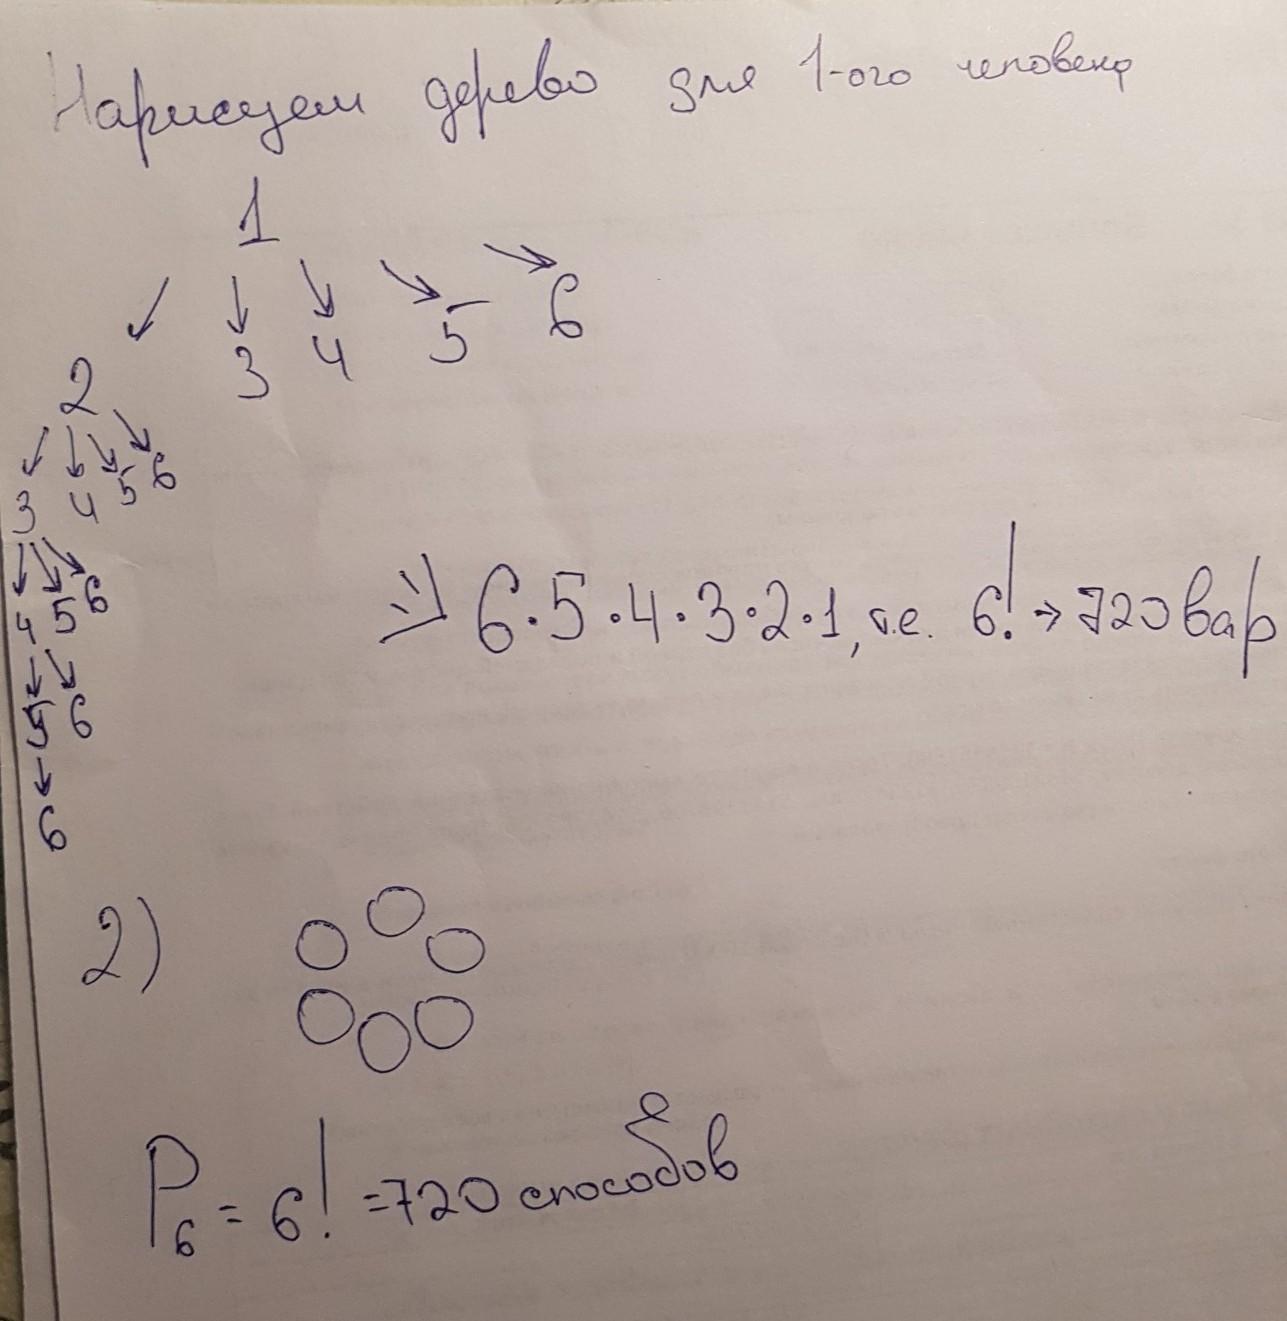 Нарисуем дерево для 1-ого человека
1
2 3 4 5 6
3 4 5 6
4 5 6
5 6
6
=> 6·5·4·3·2·1, т.е. 6! → 720 вар
2)
P₆ = 6! = 720 способов